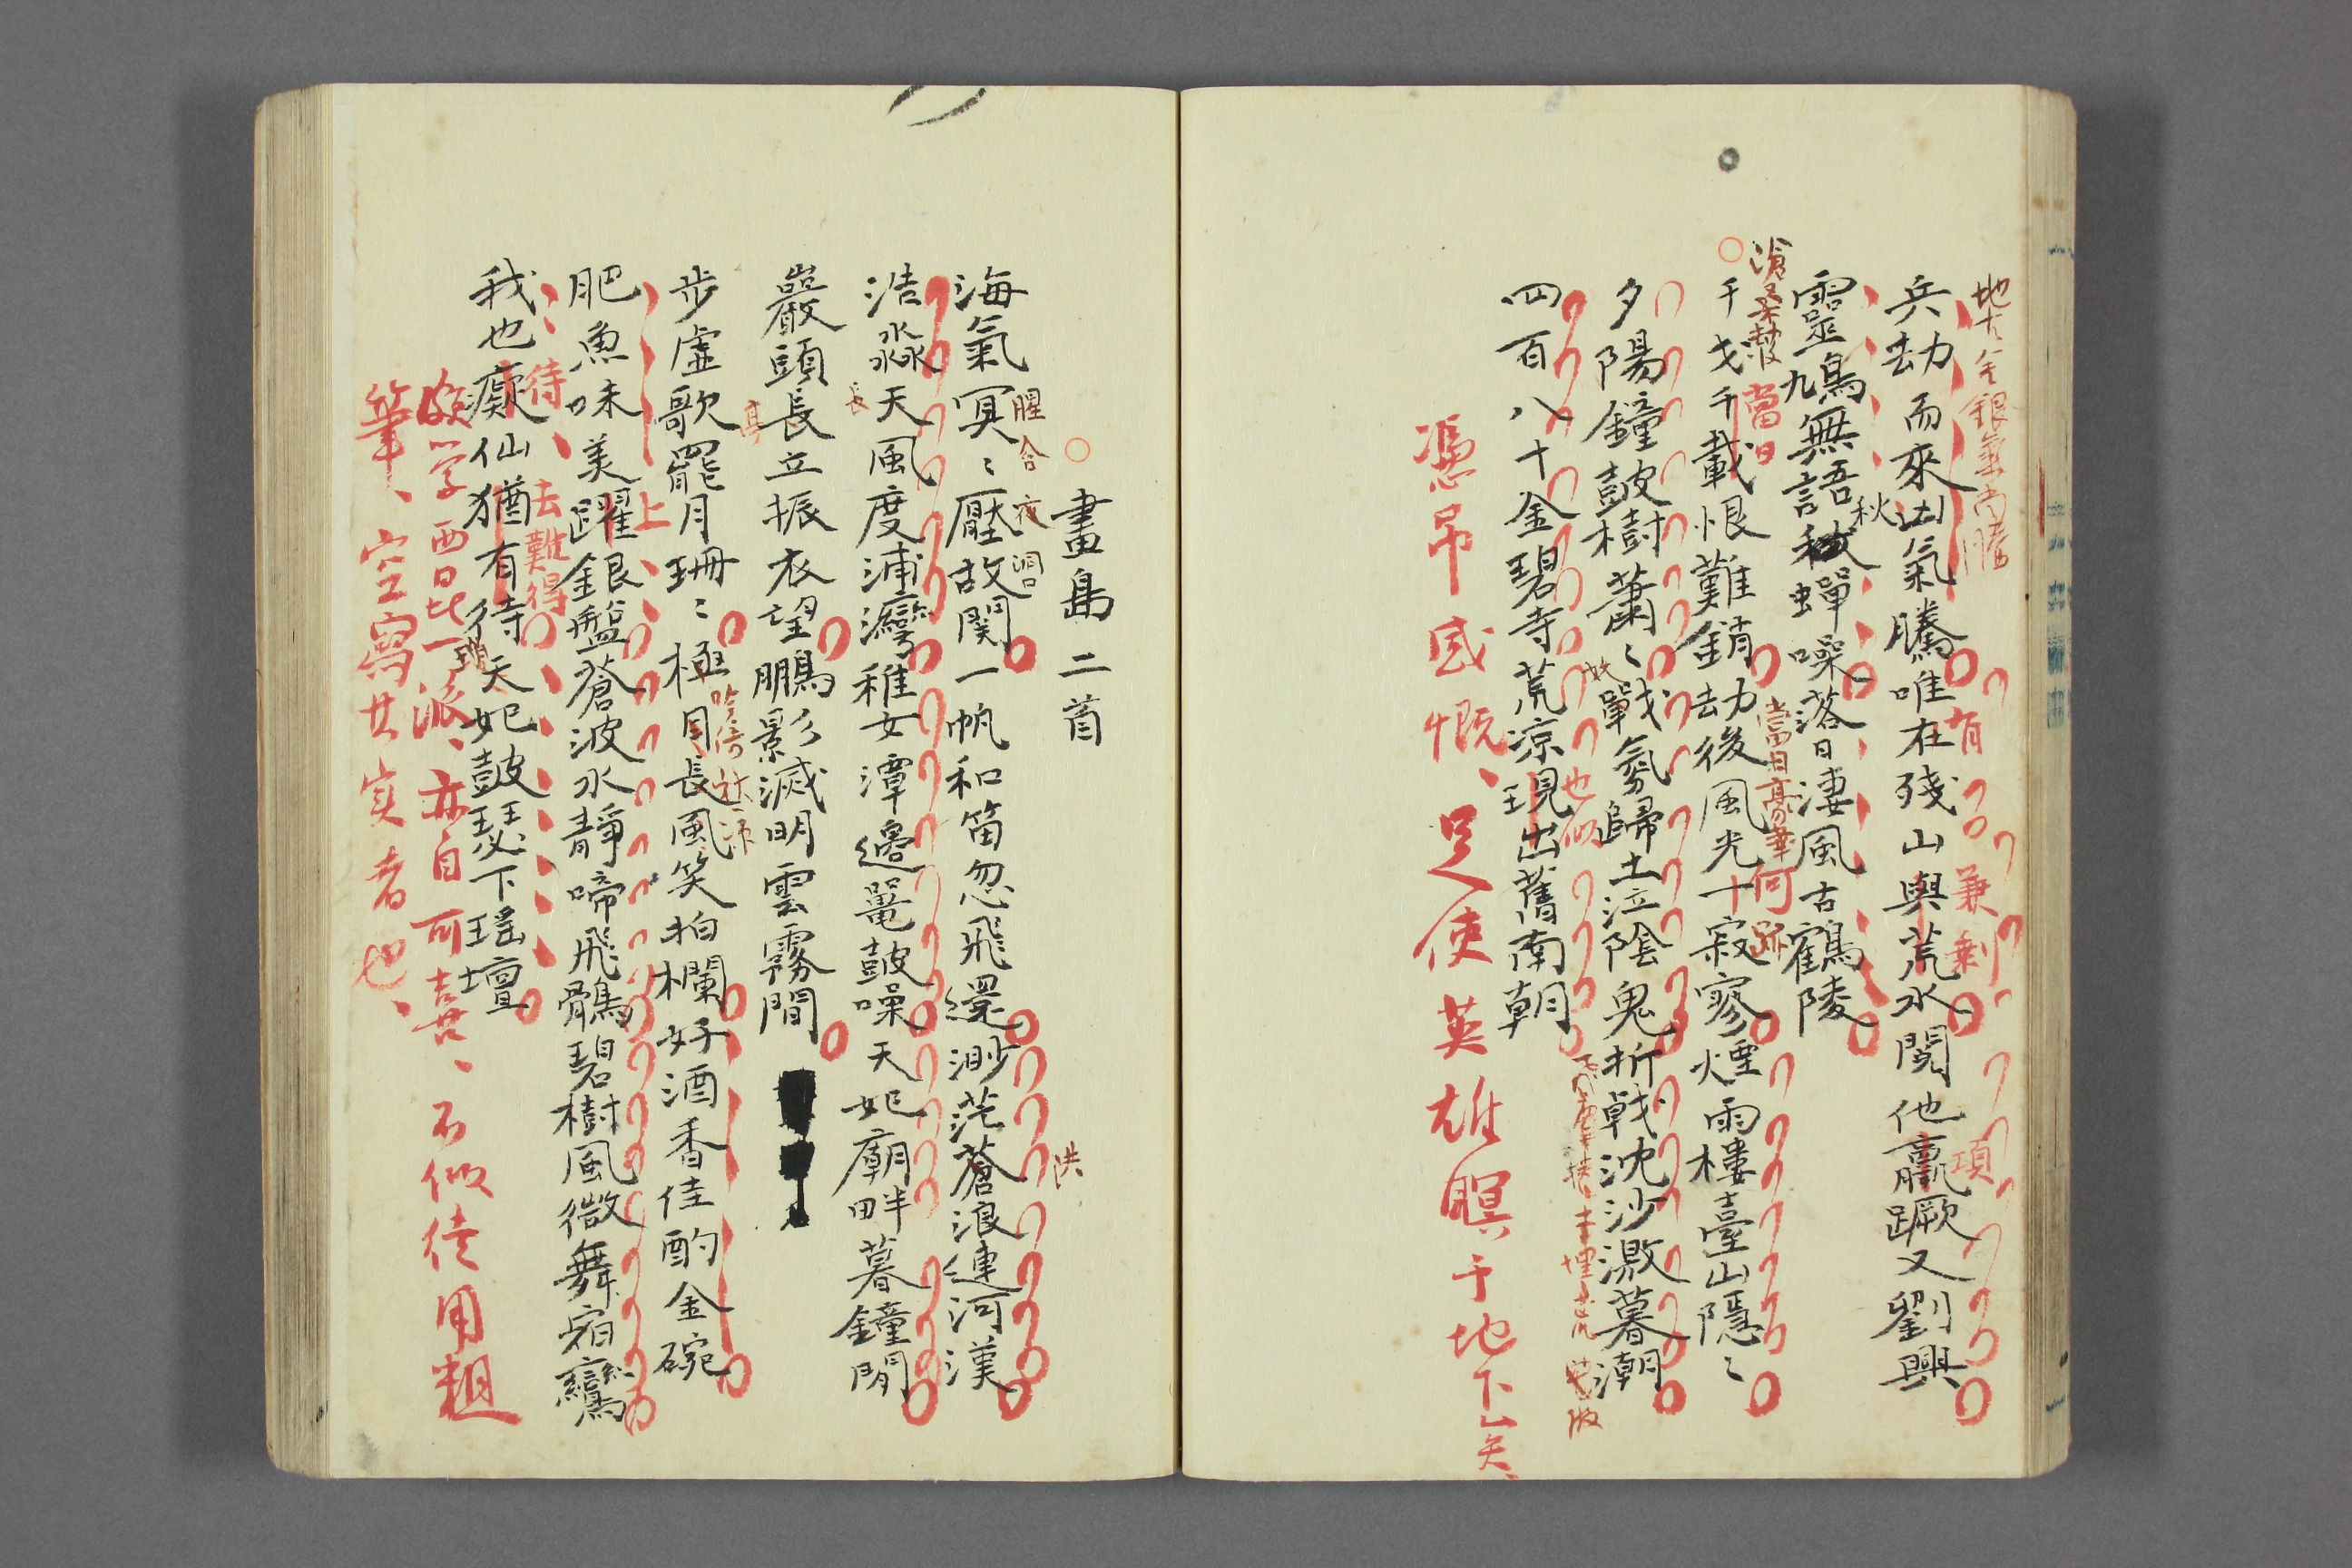 兵劫而來凶氣騰唯在残山與荒水閲他嬴蹶又劉興
有
兼剩
項
靈鳥九無語秋蟬噪落日凄風古鶴陵
秋
當日
何跡
千戈千載恨難銷劫後風光十寂寥煙雨樓臺山隱〻
夕陽鐘鼓樹蕭〻戰氛歸土泣陰鬼折戟沈沙激暮潮
也似
四百八十金碧寺荒凉現出舊南朝
憑吊感慨、足使英雄瞑于地下矣、
畫島二首
海氣冥〻壓故関一帆和笛忽飛還渺茫蒼浪連河漢
腥合夜
洪
浩淼天風度浦灣稚女潭邊鼉鼓噪天妃廟畔暮鐘閒
長
巖頭長立振衣望鵬影滅明雲霧間
步虛歌罷月珊〻極目長風笑拍欄好酒香佳酌金碗
肥魚味美躍銀盤蒼波水靜啼飛鶻碧樹風微舞宿鸞
上
我也癡仙猶有待天妃鼓瑟下瑤壇
待
去難得
頗学西昆一派、亦自可喜、不似徒用粗
筆、空寫其实者也、